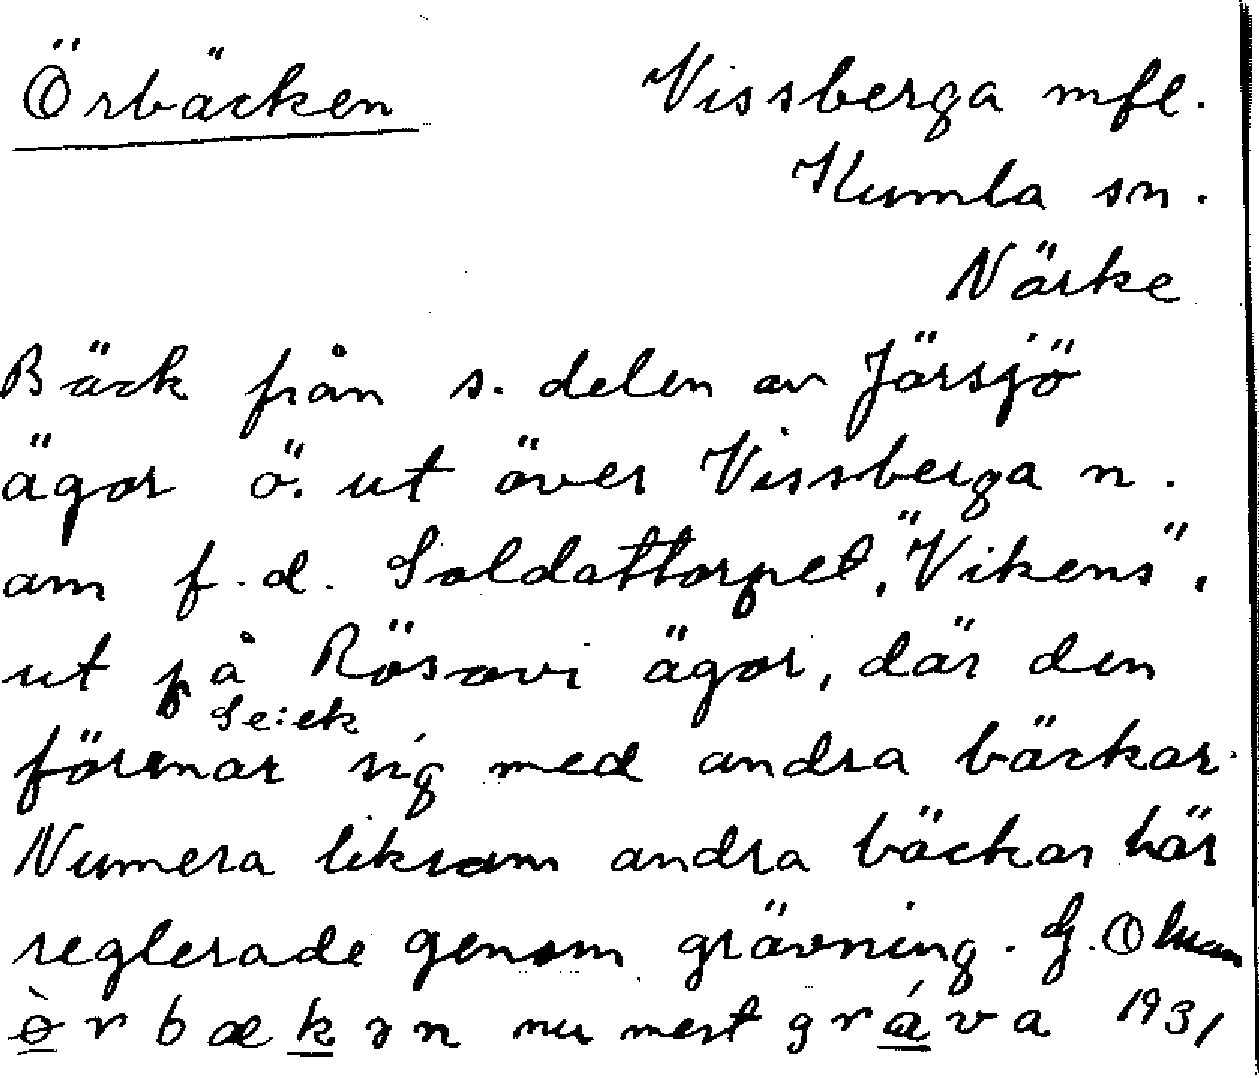 Örbäcken Vissberga mfl.
Kumla sn.
Närke
Bäck från s. delen av Järsjö
ägor ö. ut över Vissberga n.
om f.d. Soldattorpet, "Vikens",
ut på Rösavi ägor, där den
Se: ek
förenar sig med andra bäckar.
Numera liksom andra bäckar här
reglerade genom grävning. G. Ohman
ὸrbækən nu mest gráva 1931